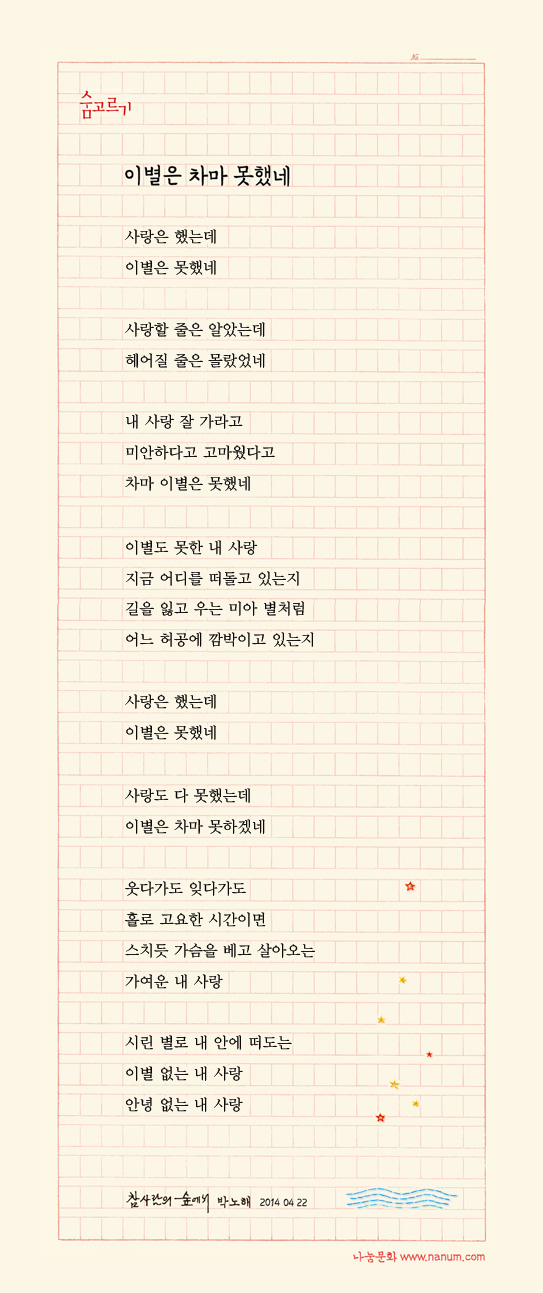 №
숨고르기
이별은 차마 못했네
사랑은 했는데
이별은 못했네
사랑할 줄은 알았는데
헤어질 줄은 몰랐었네
내 사랑 잘 가라고
미안하다고 고마웠다고
차마 이별은 못했네
이별도 못한 내 사랑
지금 어디를 떠돌고 있는지
길을 잃고 우는 미아 별처럼
어느 허공에 깜박이고 있는지
사랑은 했는데
이별은 못했네
사랑도 다 못했는데
이별은 차마 못하겠네
웃다가도 잊다가도
홀로 고요한 시간이면
스치듯 가슴을 베고 살아오는
가여운 내 사랑
시린 별로 내 안에 떠도는
이별 없는 내 사랑
안녕 없는 내 사랑
참사람의 숲에서 박노해 2014 04 22
나눔문화 www.nanum.com